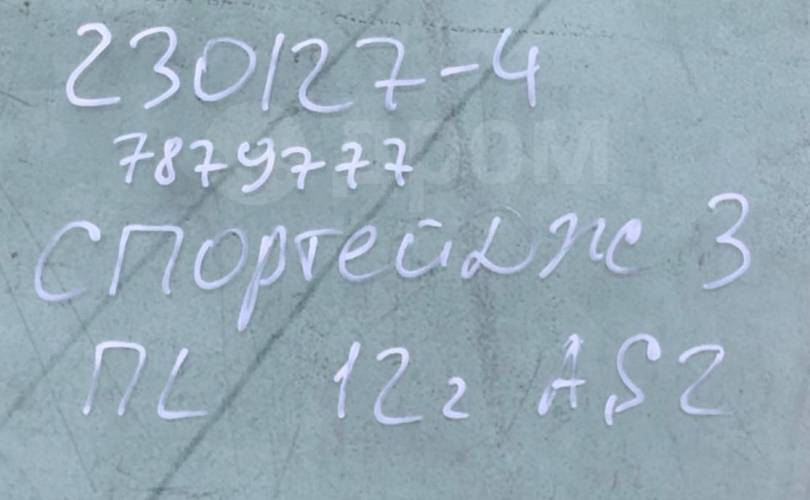 230127-4
7879777
дром
СПОРТЕЙДЖ 3
ПL 12г AS2